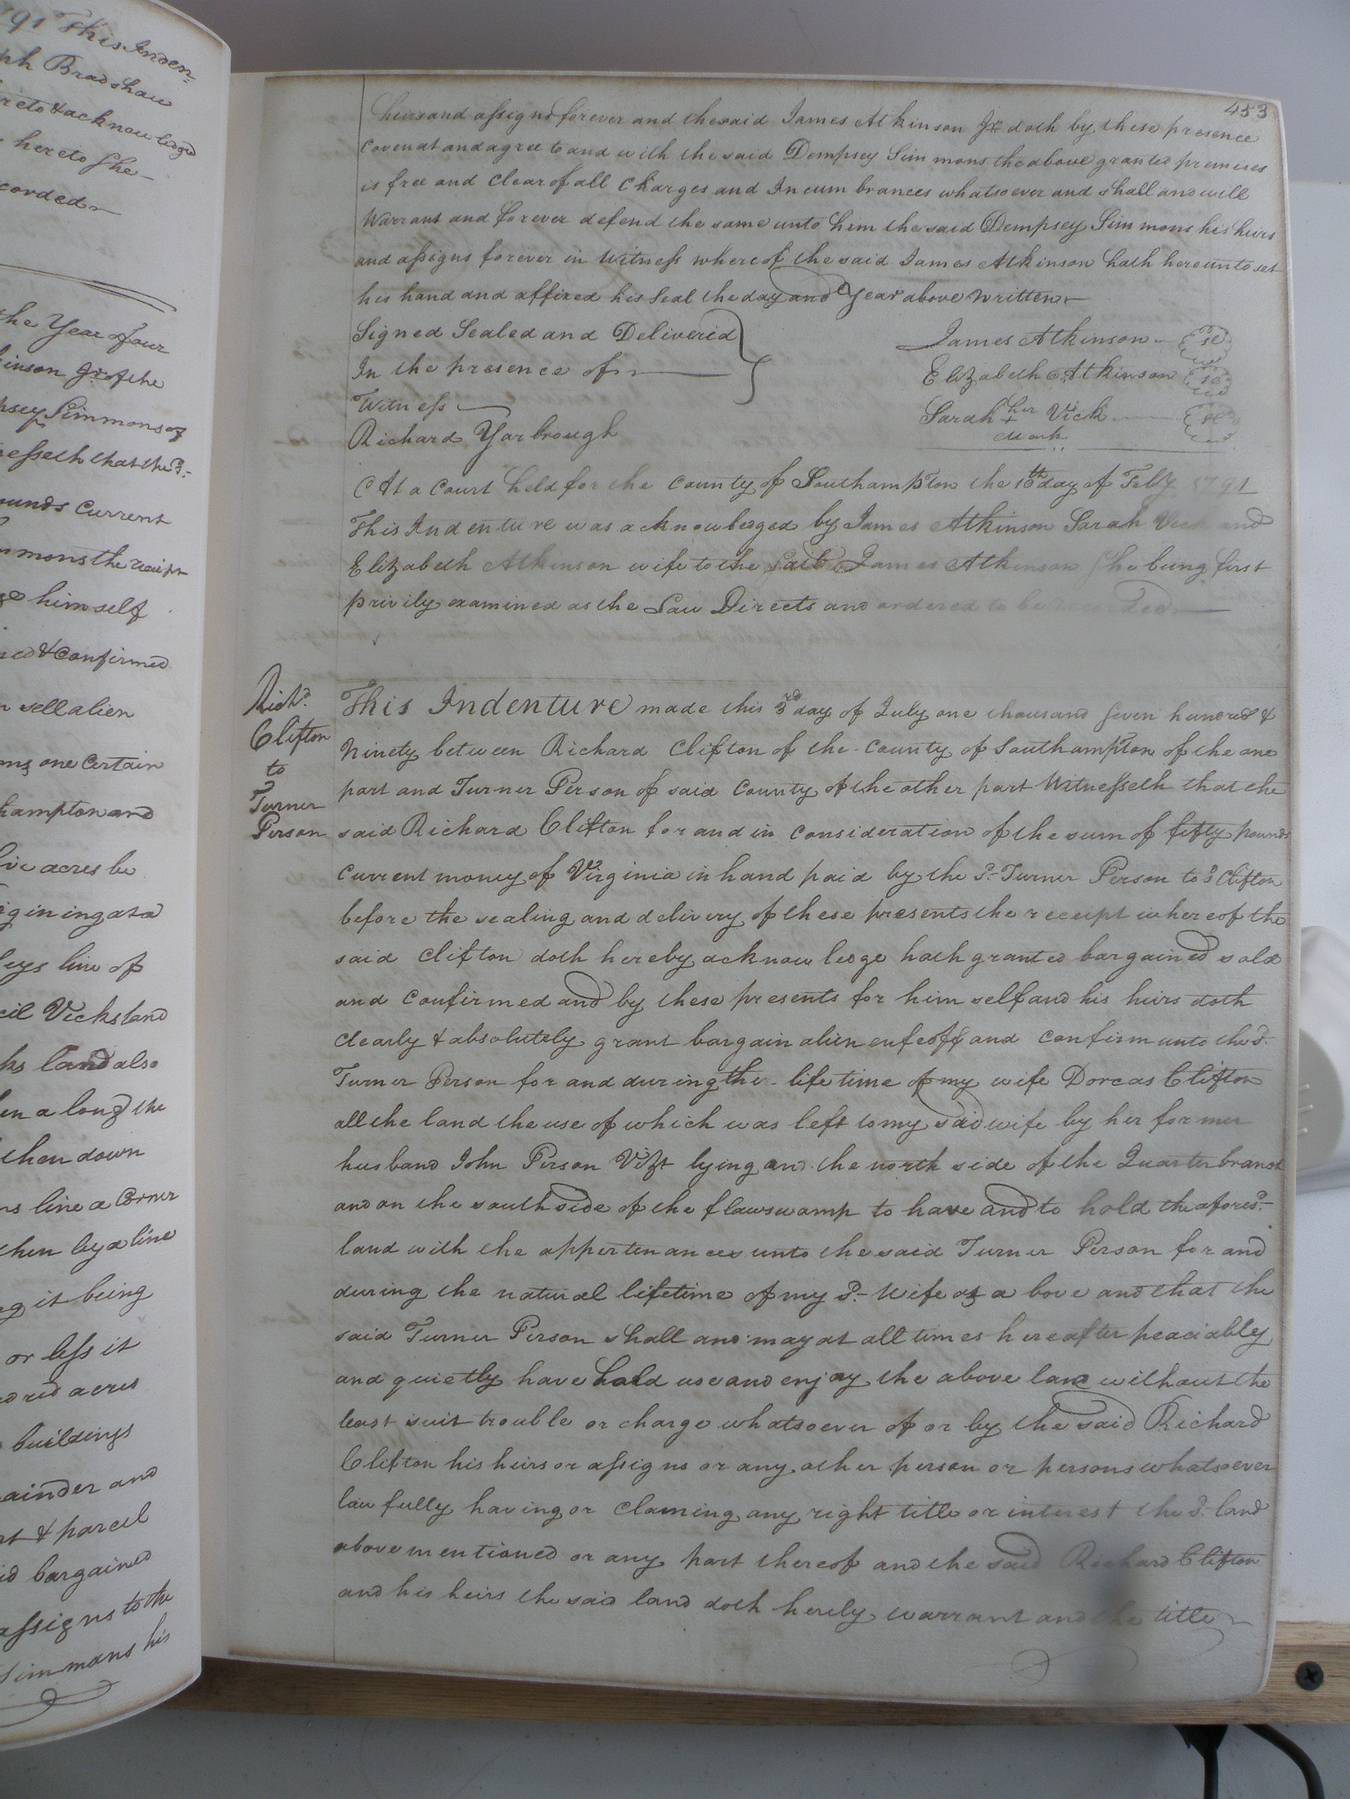 791 This Inden=
ph Bradshaw
reto & acknowledged
hereto She
corded
the Year of our
inson Jr of the
psey Simmons of
esseth that the sd.
ounds Current
mmons the receipt
himself
ed & Confirmed
sell alien
one Certain
hampton and
five acres be
gining at a
leys line of
cil Vicks land
ks land also
en a long the
then down
ns line a Corner
then by a line
it being
or less it
dred acres
buildings
ainder and
rt & parcel
id bargained
assigns to the
Simmons his
453
heirs and assigns forever and the said James Atkinson Jr doth by these presence
Covenat and agree to and with the said Dempsey Simmons the above granted premises
is free and Clear of all Charges and Incumbrances whatsoever and shall and will
Warrant and forever defend the same unto him the said Dempsey Simmons his heirs
and assigns forever in Witness whereof the said James Atkinson hath hereunto set
his hand and affixed his Seal the day and Year above written
Signed Sealed and Delivered
In the presence of
Witness
Richard Yarbrough
James Atkinson se
Elizabeth Atkinson se
Sarah her + Mark Vick se
At a Court held for the County of Southampton the 10th day of Feby 1791
This Indenture was acknowledged by James Atkinson Sarah Vick and
Elizabeth Atkinson wife to the said James Atkinson She being first
privily examined as the Law Directs and ordered to be recorded
Richd.
Clifton
to
Turner
Person
This Indenture made this 3rd day of July one thousand seven hundred &
Ninety between Richard Clifton of the County of Southampton of the one
part and Turner Person of said County of the other part Witnesseth that the
said Richard Clifton for and in consideration of the sum of fifty pounds
Current money of Virginia in hand paid by the sd. Turner Person to sd Clifton
before the sealing and delivery of these presents the receipt whereof the
said Clifton doth hereby acknowledge hath granted bargained sold
and Confirmed and by these presents for him self and his heirs doth
Clearly & absolutely grant bargain alien enfeoff and Confirm unto the sd.
Turner Person for and during the life time of my wife Dorcas Clifton
all the land the use of which was left to my said wife by her former
husband John Person Vizt lying on the north side of the Quarter branch
and on the south side of the flaw swamp to have and to hold the aforesd.
land with the appertenances unto the said Turner Person for and
during the natural lifetime of my sd. Wife as a bove and that the
said Turner Person shall and may at all times hereafter peaciably
and quietly have hold use and enjoy the above land without the
least suit trouble or charge whatsoever of or by the said Richard
Clifton his heirs or assigns or any other person or persons whatsoever
lawfully having or claming any right title or interest the sd. land
above mentioned or any part thereof and the said Richard Clifton
and his heirs the said land doth hereby warrant and the title